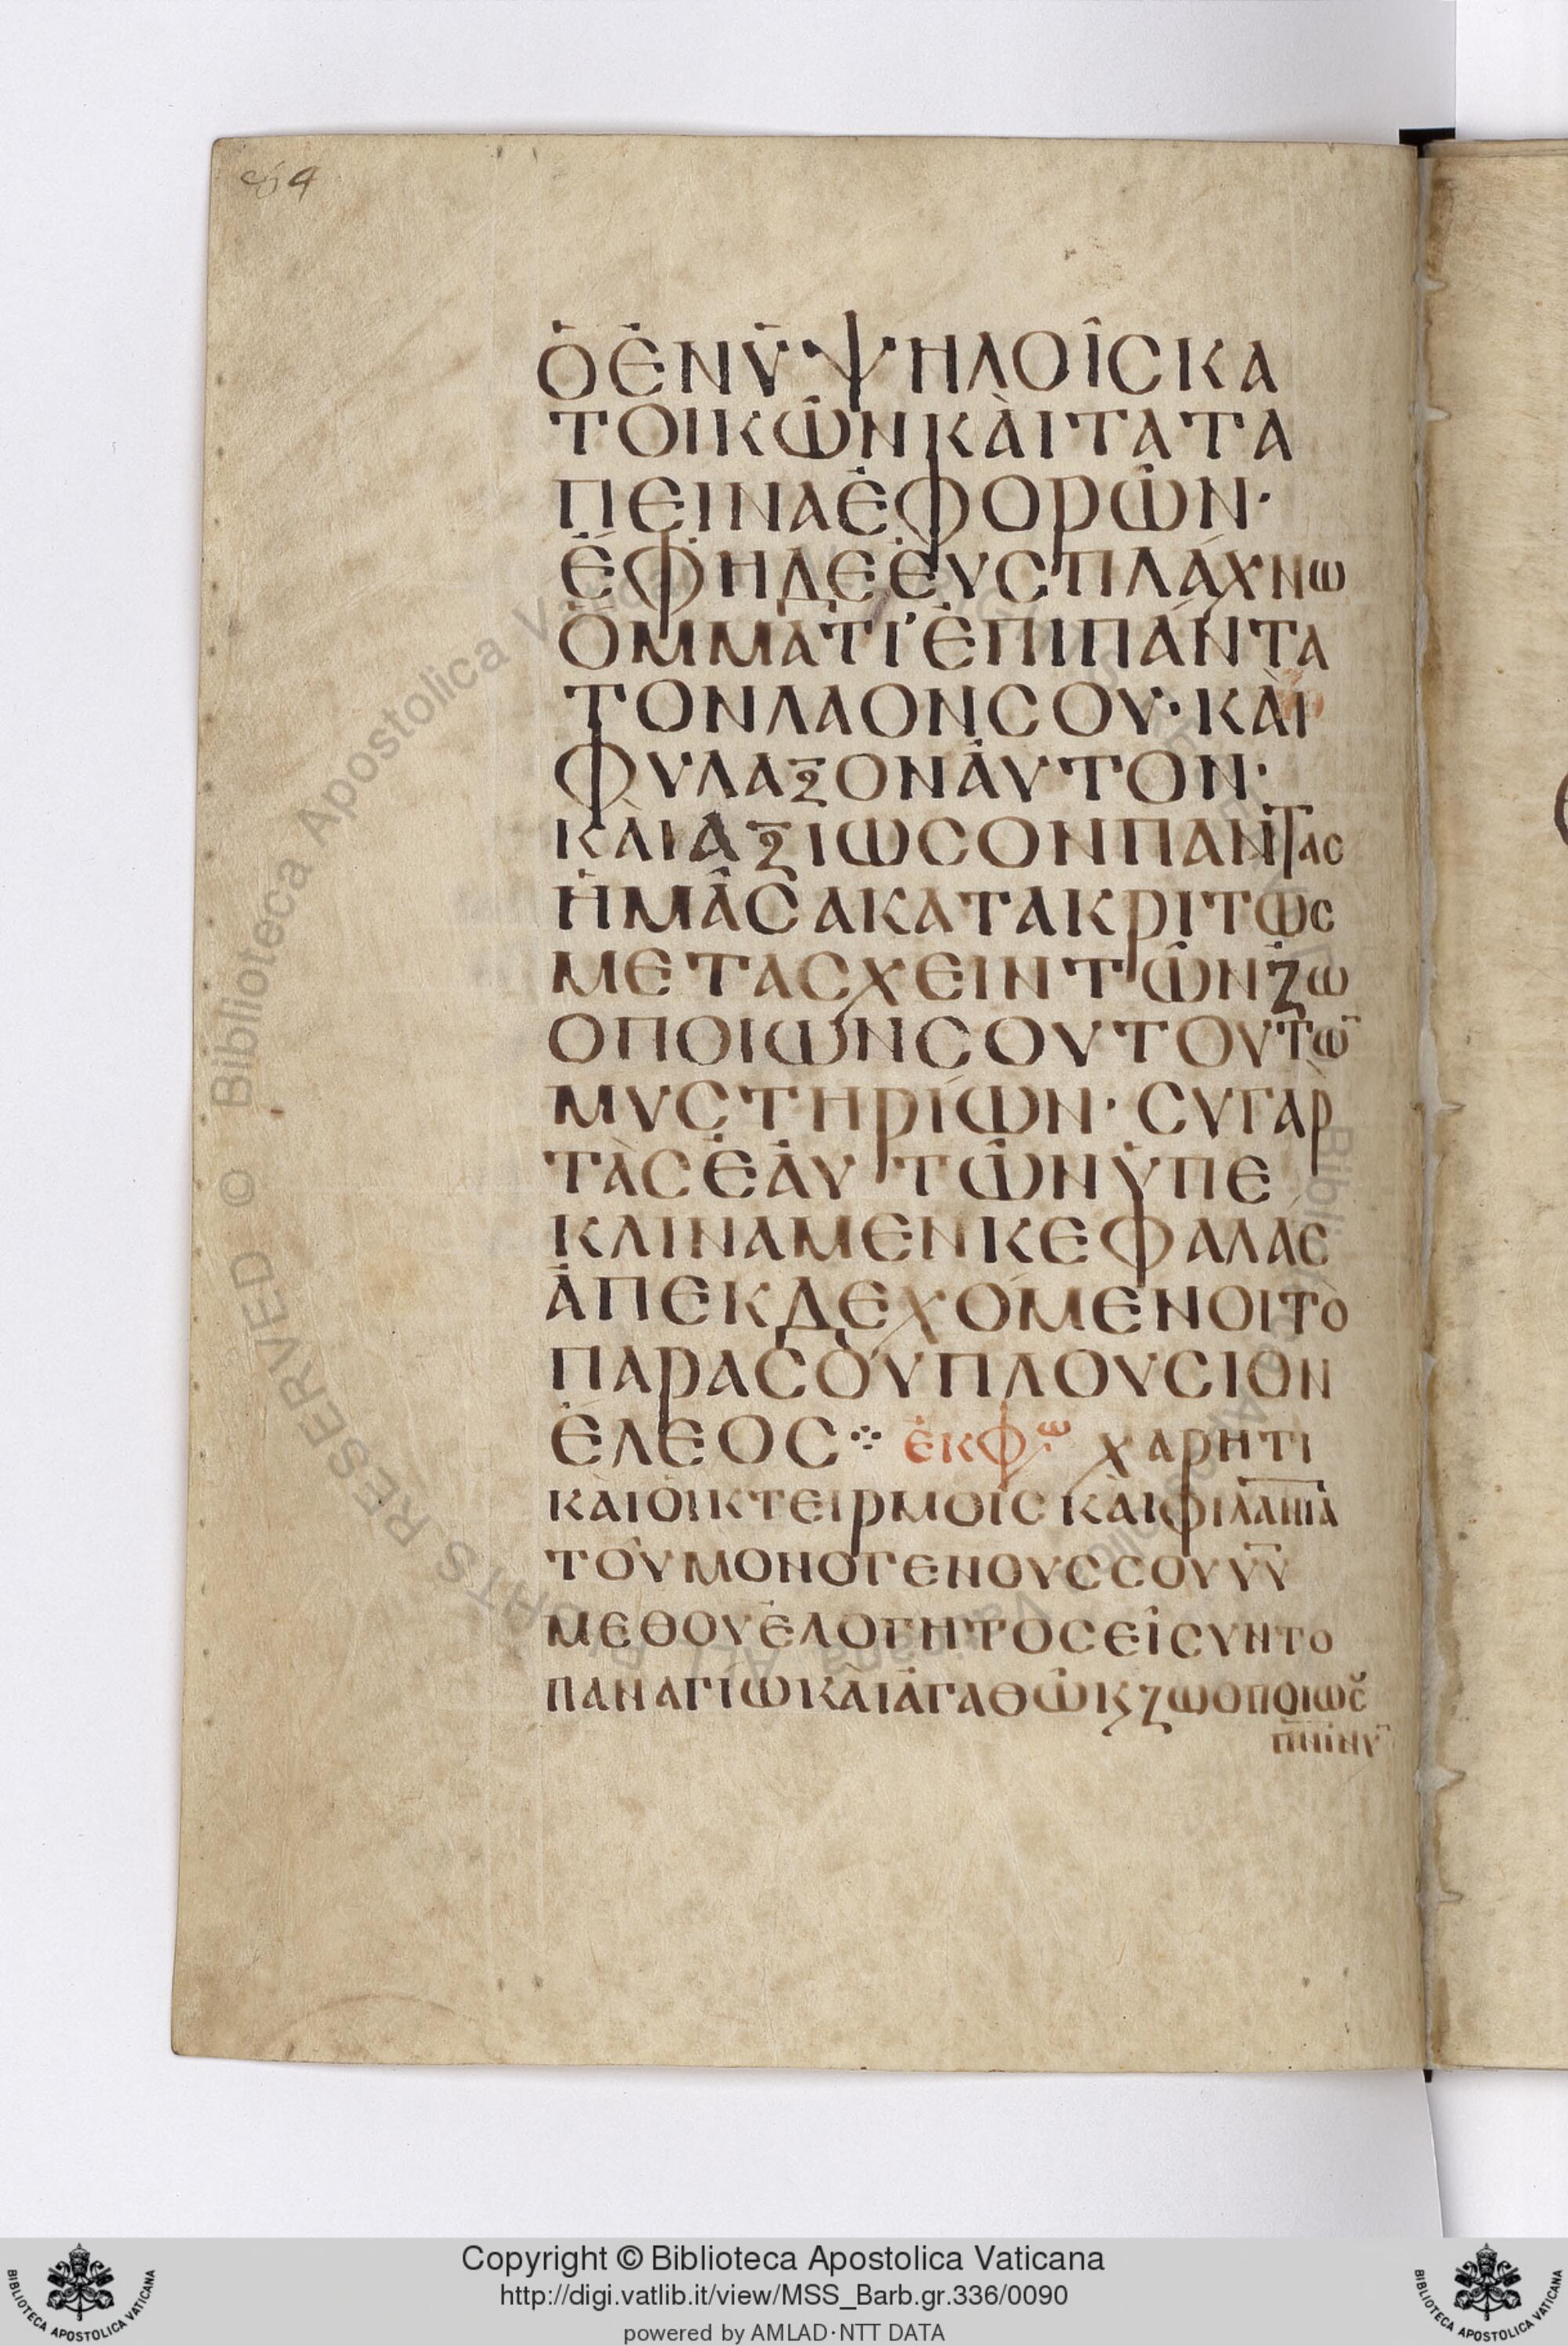 ὁ ἐν ὑψηλοῖς κα
τοικῶν καὶ τα τα
πεινα ἐφορῶν·
ἐφηδε ἐυσπλάχνω
ὄμματι ἐπι πάντα
τον λαον σου· καὶ
φυλαξον ἀυτον·
και αξιωσον παντας
ἡμᾶς ακατακριτως
μετασχειν τῶν ζω
οποιων σου τουτω̅
μυστηρίων· συ γαρ
τὰς ἑἀυτῶν ὑπε
κλιναμεν κεφαλάς
ἀπεκδεχόμενοι τὸ
παρα σοῦ πλουσιον
ἔλεος ⁘ ἐκφω χαρητι
καὶ ὀικτειρμοῖς καὶ φιλα̅π̅ι̅ὰ
τοῦ μονογενους σου υ̅υ̅
μεθ ου ἐλογητος εἶ συν το
παναγίω καὶ ἀγαθῶ κ ζωοποιω σ
π̅ν̅ι̅ νυ
Copyright © Biblioteca Apostolica Vaticana
http://digi.vatlib.it/view/MSS_Barb.gr.336/0090
powered by AMLAD·NTT DATA
BIBLIOTECA APOSTOLICA VATICANA
BIBLIOTECA APOSTOLICA VATICANA